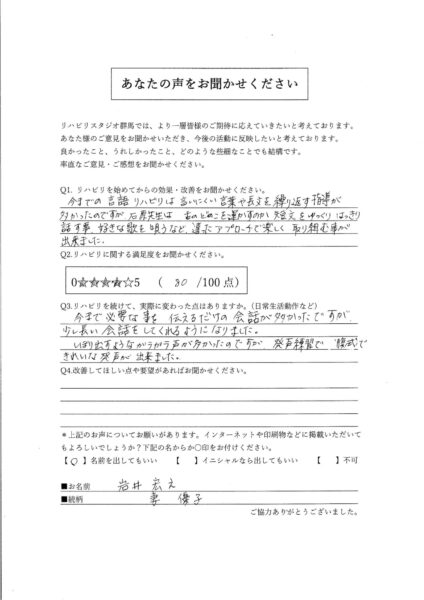 あなたの声をお聞かせください
リハビリスタジオ群馬では、より一層皆様のご期待に応えていきたいと考えております。
あなた様のご意見をお聞かせいただき、今後の活動に反映したいと考えております。
良かったこと、うれしかったこと、どのような些細なことでも結構です。
率直なご意見・ご感想をお聞かせください。
Q1. リハビリを始めてからの効果・改善をお聞かせください。
今までの言語リハビリは言いにくい言葉や長文を繰り返す指導が
多かったのですが 石原先生は 短文をゆっくり はっきり
話す事、好きな歌を唄うなど、違ったアプローチで楽しく 取り組む事が
出来ました。
Q2.リハビリに関する満足度をお聞かせください。
0☆☆☆☆☆5 ( 80 /100点)
Q3.リハビリを続けて、実際に変わった点はありますか。(日常生活動作など)
今まで必要な事を 伝えるだけの 会話が多かったですが
少し長い 会話を してくれるようになりました。
しぼり出すようなガラガラ声が多かったのですが 発声練習で 腹式で
きれいな発声が 出来ました。
Q4.改善してほしい点や要望があればお聞かせください。
*上記のお声についてお願いがあります。インターネットや印刷物などに掲載いただいて
もよろしいでしょうか?下記の名からか○印をお付けください。
【○】名前を出してもいい 【 】イニシャルなら出してもいい 【 】不可
■お名前 岩井 宏之
■続柄 妻 優子
ご協力ありがとうございました。